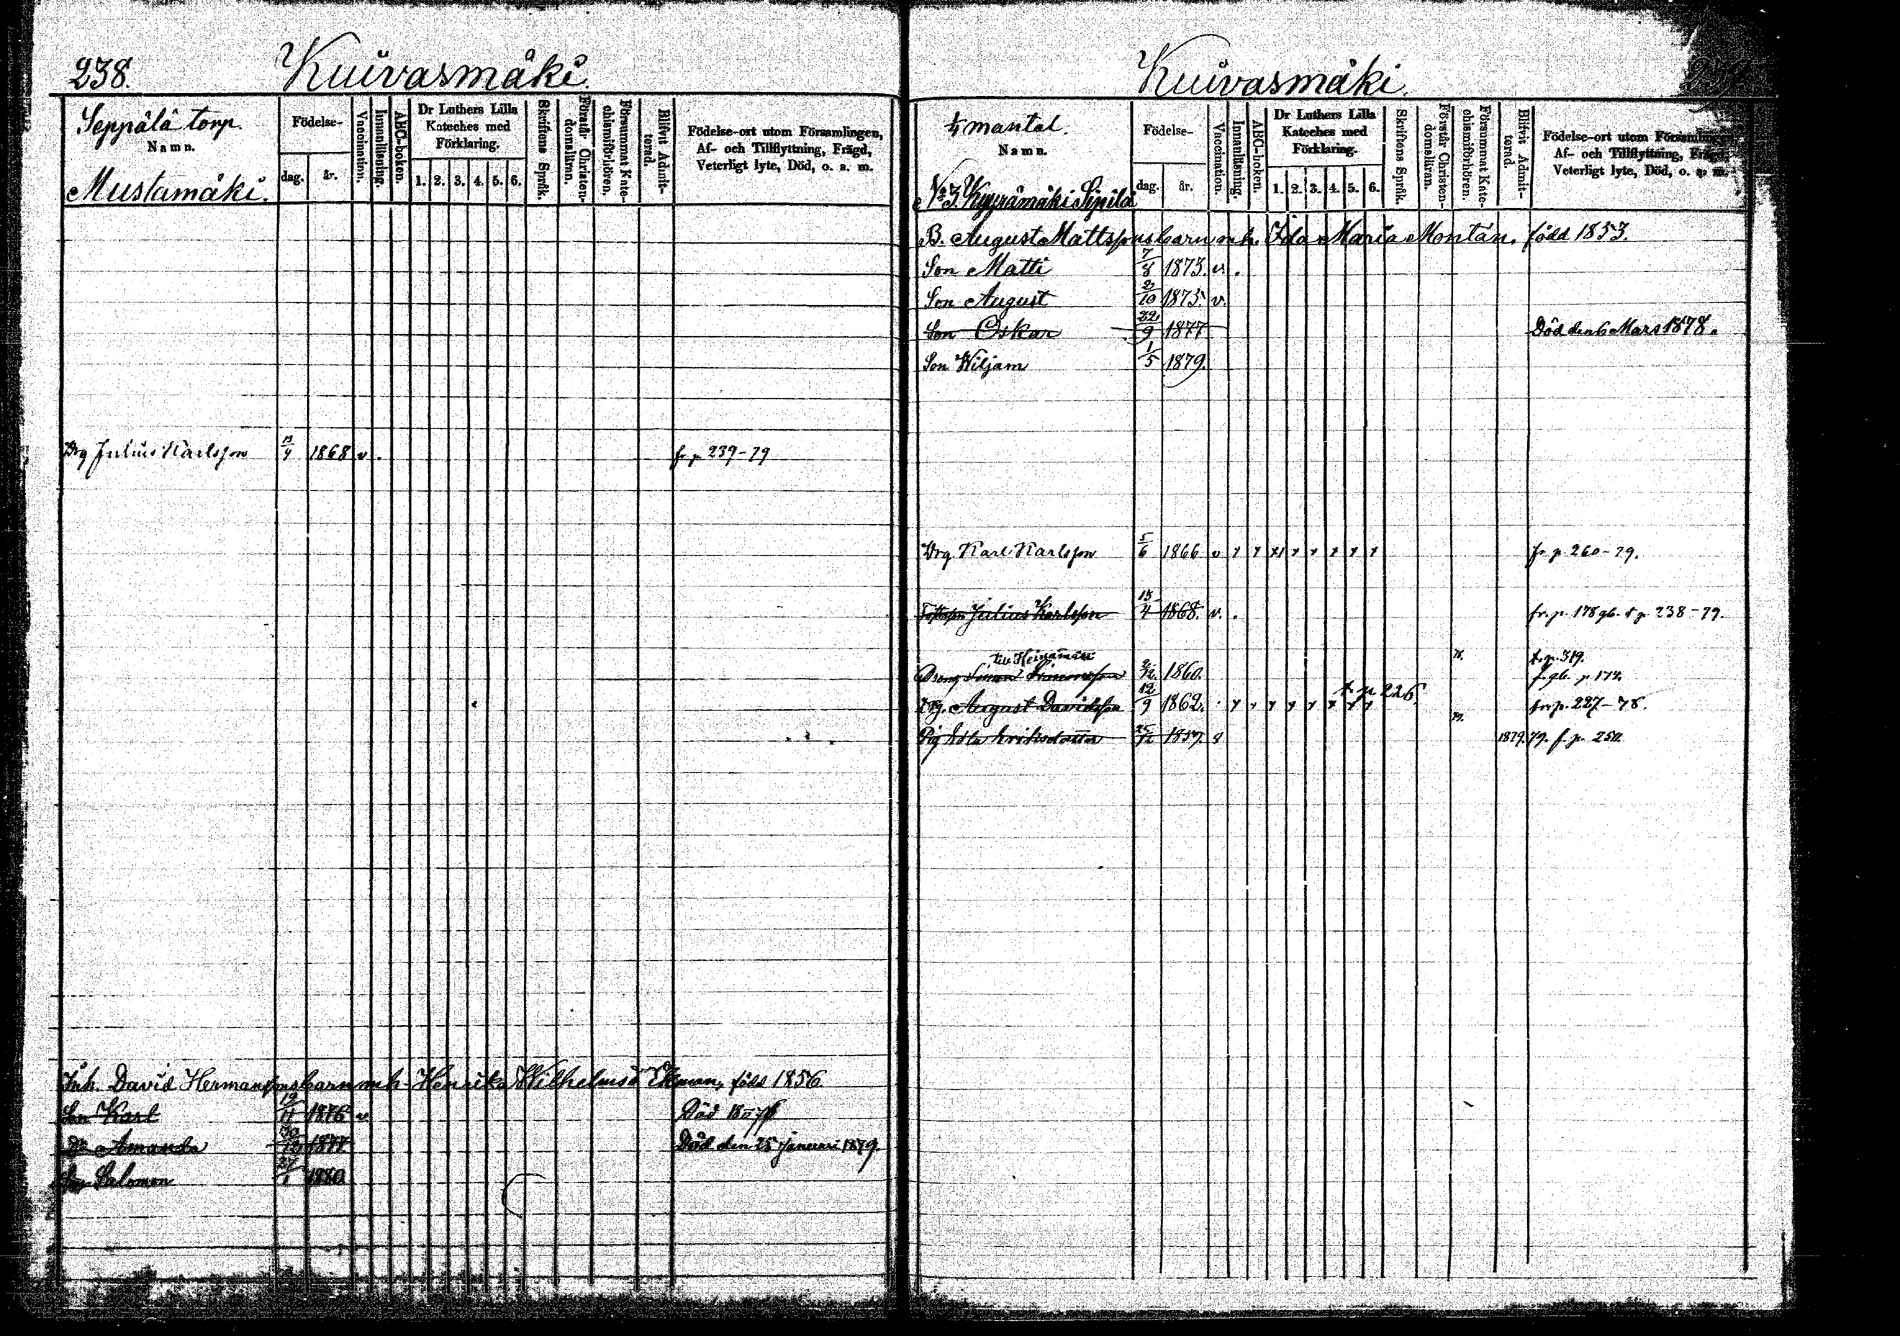 238.
Kuivasmäki.
Seppälä torp.
Namn.
Mustamäki.
Födelse-
dag.
år.
Vaccination.
Innanläsning.
ABC-boken.
Dr Luthers Lilla
Kateches med
Förklaring.
1. 2. 3. 4. 5. 6.
Skriftens Språk.
Förstår Christen-
domsläran.
Försummat Kate-
chismiförhören.
Blifvit Admit-
terad.
Födelse-ort utom Församlingen,
Af- och Tillflyttning, Frägd,
Veterligt lyte, Död, o. s. m.
Drg Julius Karlsson 15/4 1868 v . fr p 239-79
Inh. David Hermanssons barn m h Henrika Wilhelmsd Ekman, född 1856
Son Karl 19/11 1876 v Död
Dr Amanda 30/12 1877 Död den 25 Januari 1879.
Son Salomon 27/1 1880
Kuivasmäki.
239.
1/4 mantal.
Namn.
No 3. Kyyrämäki Sipilä
Födelse-
dag.
år.
Vaccination.
Innanläsning.
ABC-boken.
Dr Luthers Lilla
Kateches med
Förklaring.
1. 2. 3. 4. 5. 6.
Skriftens Språk.
Förstår Christen-
domsläran.
Försummat Kate-
chismiförhören.
Blifvit Admit-
terad.
Födelse-ort utom Församlingen,
Af- och Tillflyttning, Frägd,
Veterligt lyte, Död, o. s. m.
B. August Mattssons barn m h. Ida Maria Montän, född 1853.
Son Matti 7/8 1873. v .
Son August 2/10 1875 v.
Son Oskar 22/9 1877 Död den 6 Mars 1878.
Son Wiljam 1/5 1879.
Drg. Karl Karlsson 5/6 1866 v fr p. 260-79.
Julius Karlsson 15/4 1868. v. . fr. p. 178 gb. t p. 238-79.
till Heinämäki t. p. 319.
Dreng Simon Simonsson 2/12 1860. f. gb. p 174.
t p 226.
Drg. August Davidsson 12/9 1862. fr p. 227-78.
Pig Eva Eriksdotter 25/12 1857. 1879. 79. f. p. 250.